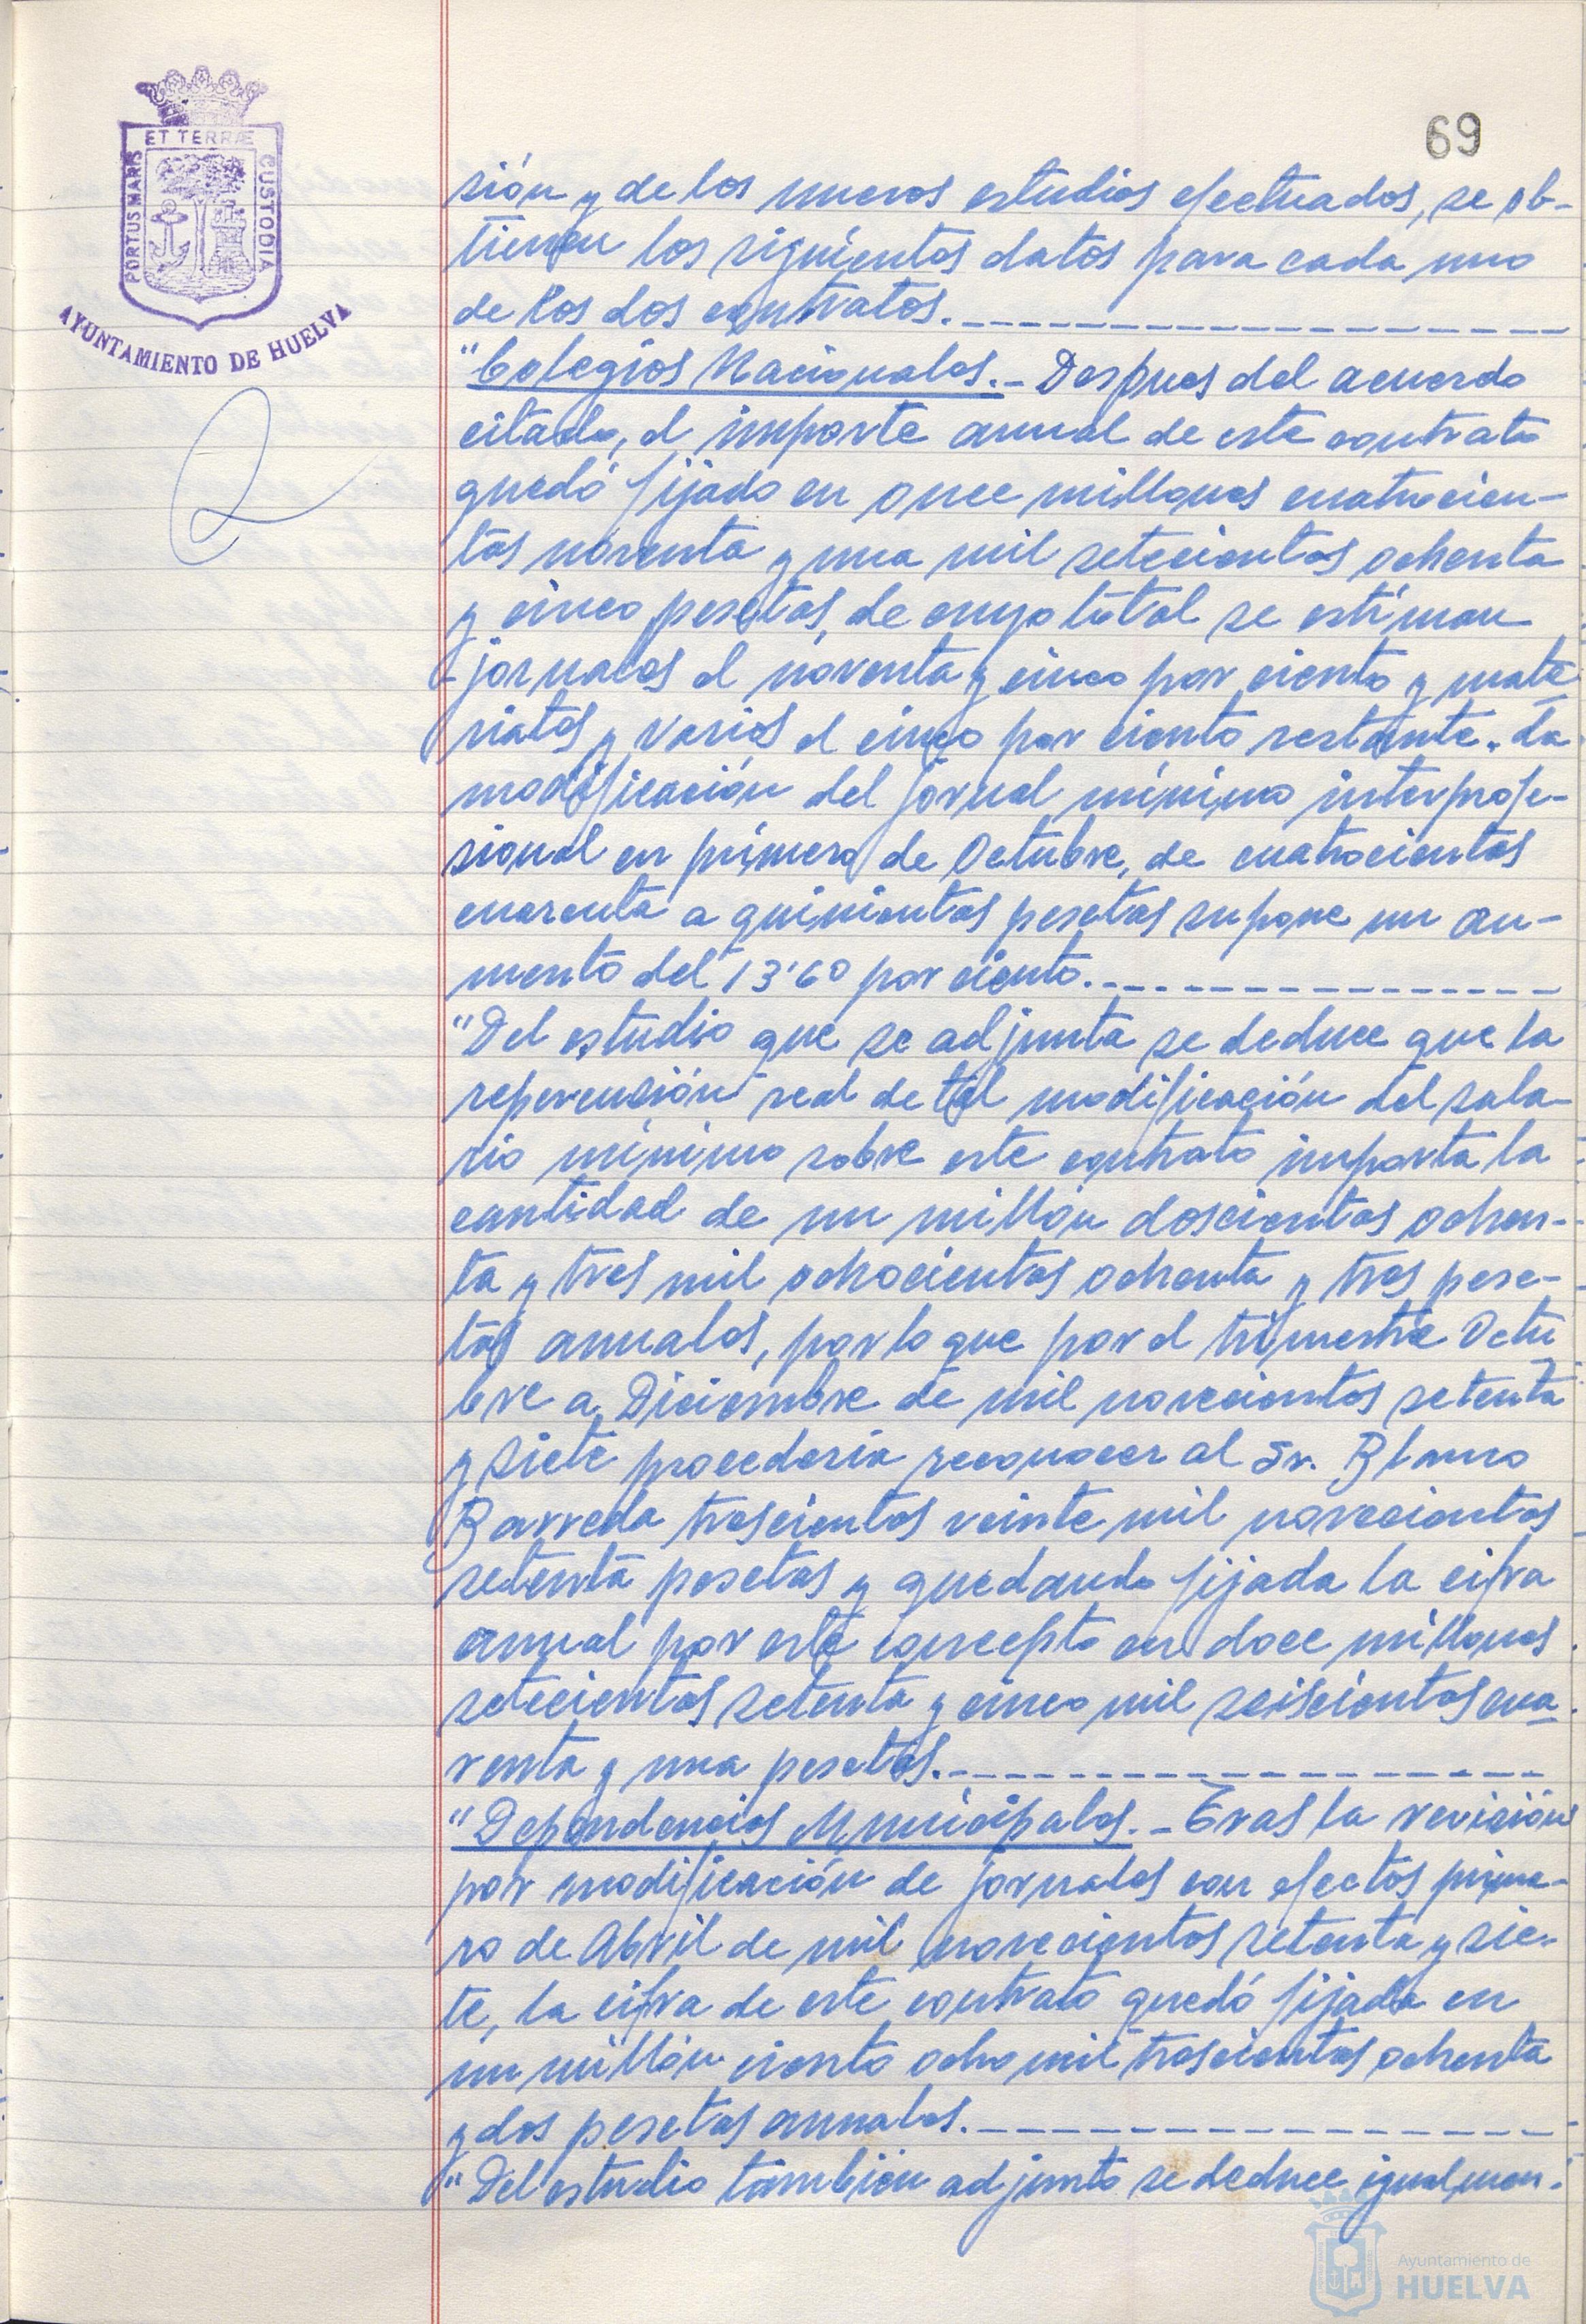 69
ET TERRÆ
PORTUS MARIS
CUSTODIA
AYUNTAMIENTO DE HUELVA
sión y de los nuevos estudios efectuados, se ob-
tienen los siguientes datos para cada uno
de los dos contratos.
"Colegios Nacionales.- Despues del acuerdo
citado, el importe anual de este contrato
quedó fijado en once millones cuatrocien-
tas noventa y una mil setecientas ochenta
y cinco pesetas, de cuyo total se estiman
jornales el noventa y cinco por ciento y mate-
riales y varios el cinco por ciento restante. La
modificación del jornal mínimo interprofe-
sional en primero de Octubre, de cuatrocientas
cuarenta a quinientas pesetas supone un au-
mento del 13'60 por ciento.
"Del estudio que se adjunta se deduce que la
repercusión real de tal modificación del sala-
rio mínimo sobre este contrato importa la
cantidad de un millón doscientas ochen-
ta y tres mil ochocientas ochenta y tres pese-
tas anuales, por lo que por el trimestre Octu
bre a Diciembre de mil novecientos setenta
y siete procedería reconocer al Sr. Blanco
Barreda trescientas veinte mil novecientas
setenta pesetas y quedando fijada la cifra
anual por este concepto en doce millones
setecientas setenta y cinco mil seiscientas cua-
renta y una pesetas.
"Dependencias Municipales.- Tras la revisión
por modificación de jornales con efectos prime-
ro de Abril de mil novecientos setenta y sie-
te, la cifra de este contrato quedó fijada en
un millón ciento ocho mil trescientas ochenta
y dos pesetas anuales.
"Del estudio también adjunto se deduce igualmen-
Ayuntamiento de
HUELVA